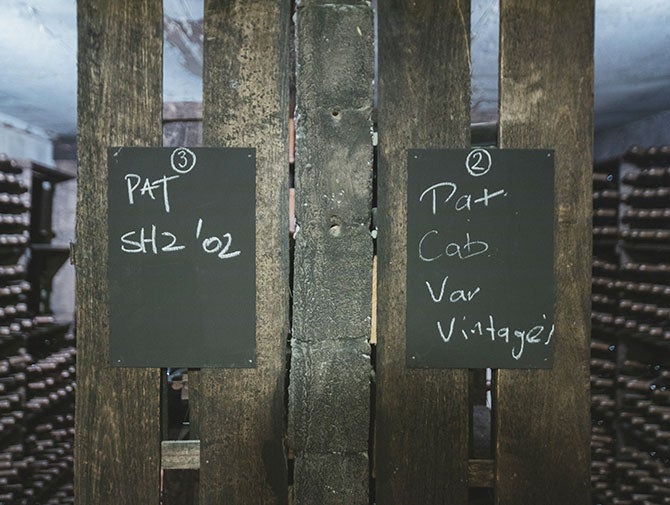 ③
PAT
SHZ '02
②
Pat
Cab
Var
Vintage's